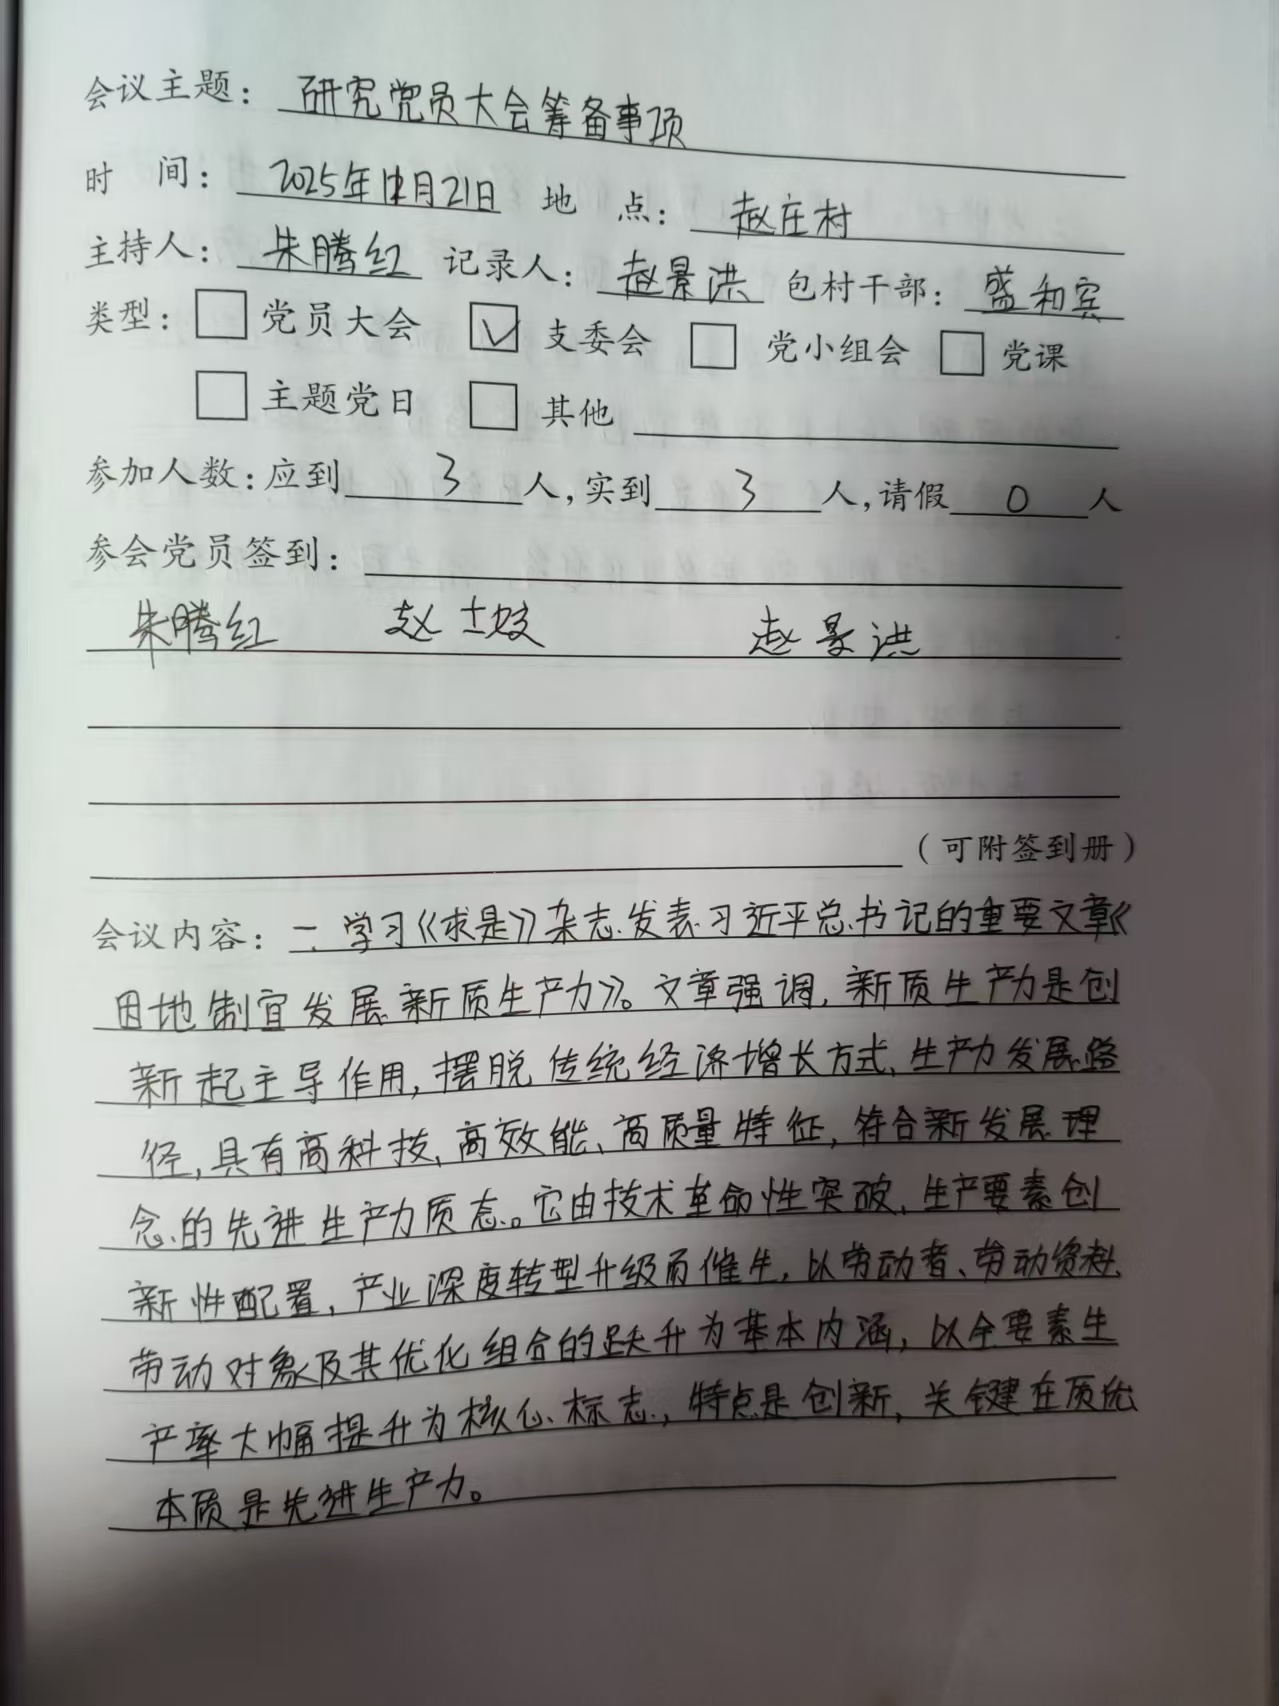 会议主题：研究党员大会筹备事项
时 间：2025年12月21日 地 点：赵庄村
主持人：朱腾红 记录人：赵景洪 包村干部：盛和宾
类型：□党员大会 ☑支委会 □党小组会 □党课
□主题党日 □其他
参加人数：应到 3 人，实到 3 人，请假 0 人
参会党员签到：
朱腾红 赵士 赵景洪
（可附签到册）
会议内容：一、学习《求是》杂志发表习近平总书记的重要文章《
因地制宜发展新质生产力》。文章强调，新质生产力是创
新起主导作用，摆脱传统经济增长方式、生产力发展路
径，具有高科技、高效能、高质量特征，符合新发展理
念的先进生产力质态。它由技术革命性突破、生产要素创
新性配置、产业深度转型升级而催生，以劳动者、劳动资料、
劳动对象及其优化组合的跃升为基本内涵，以全要素生
产率大幅提升为核心标志，特点是创新，关键在质优
本质是先进生产力。